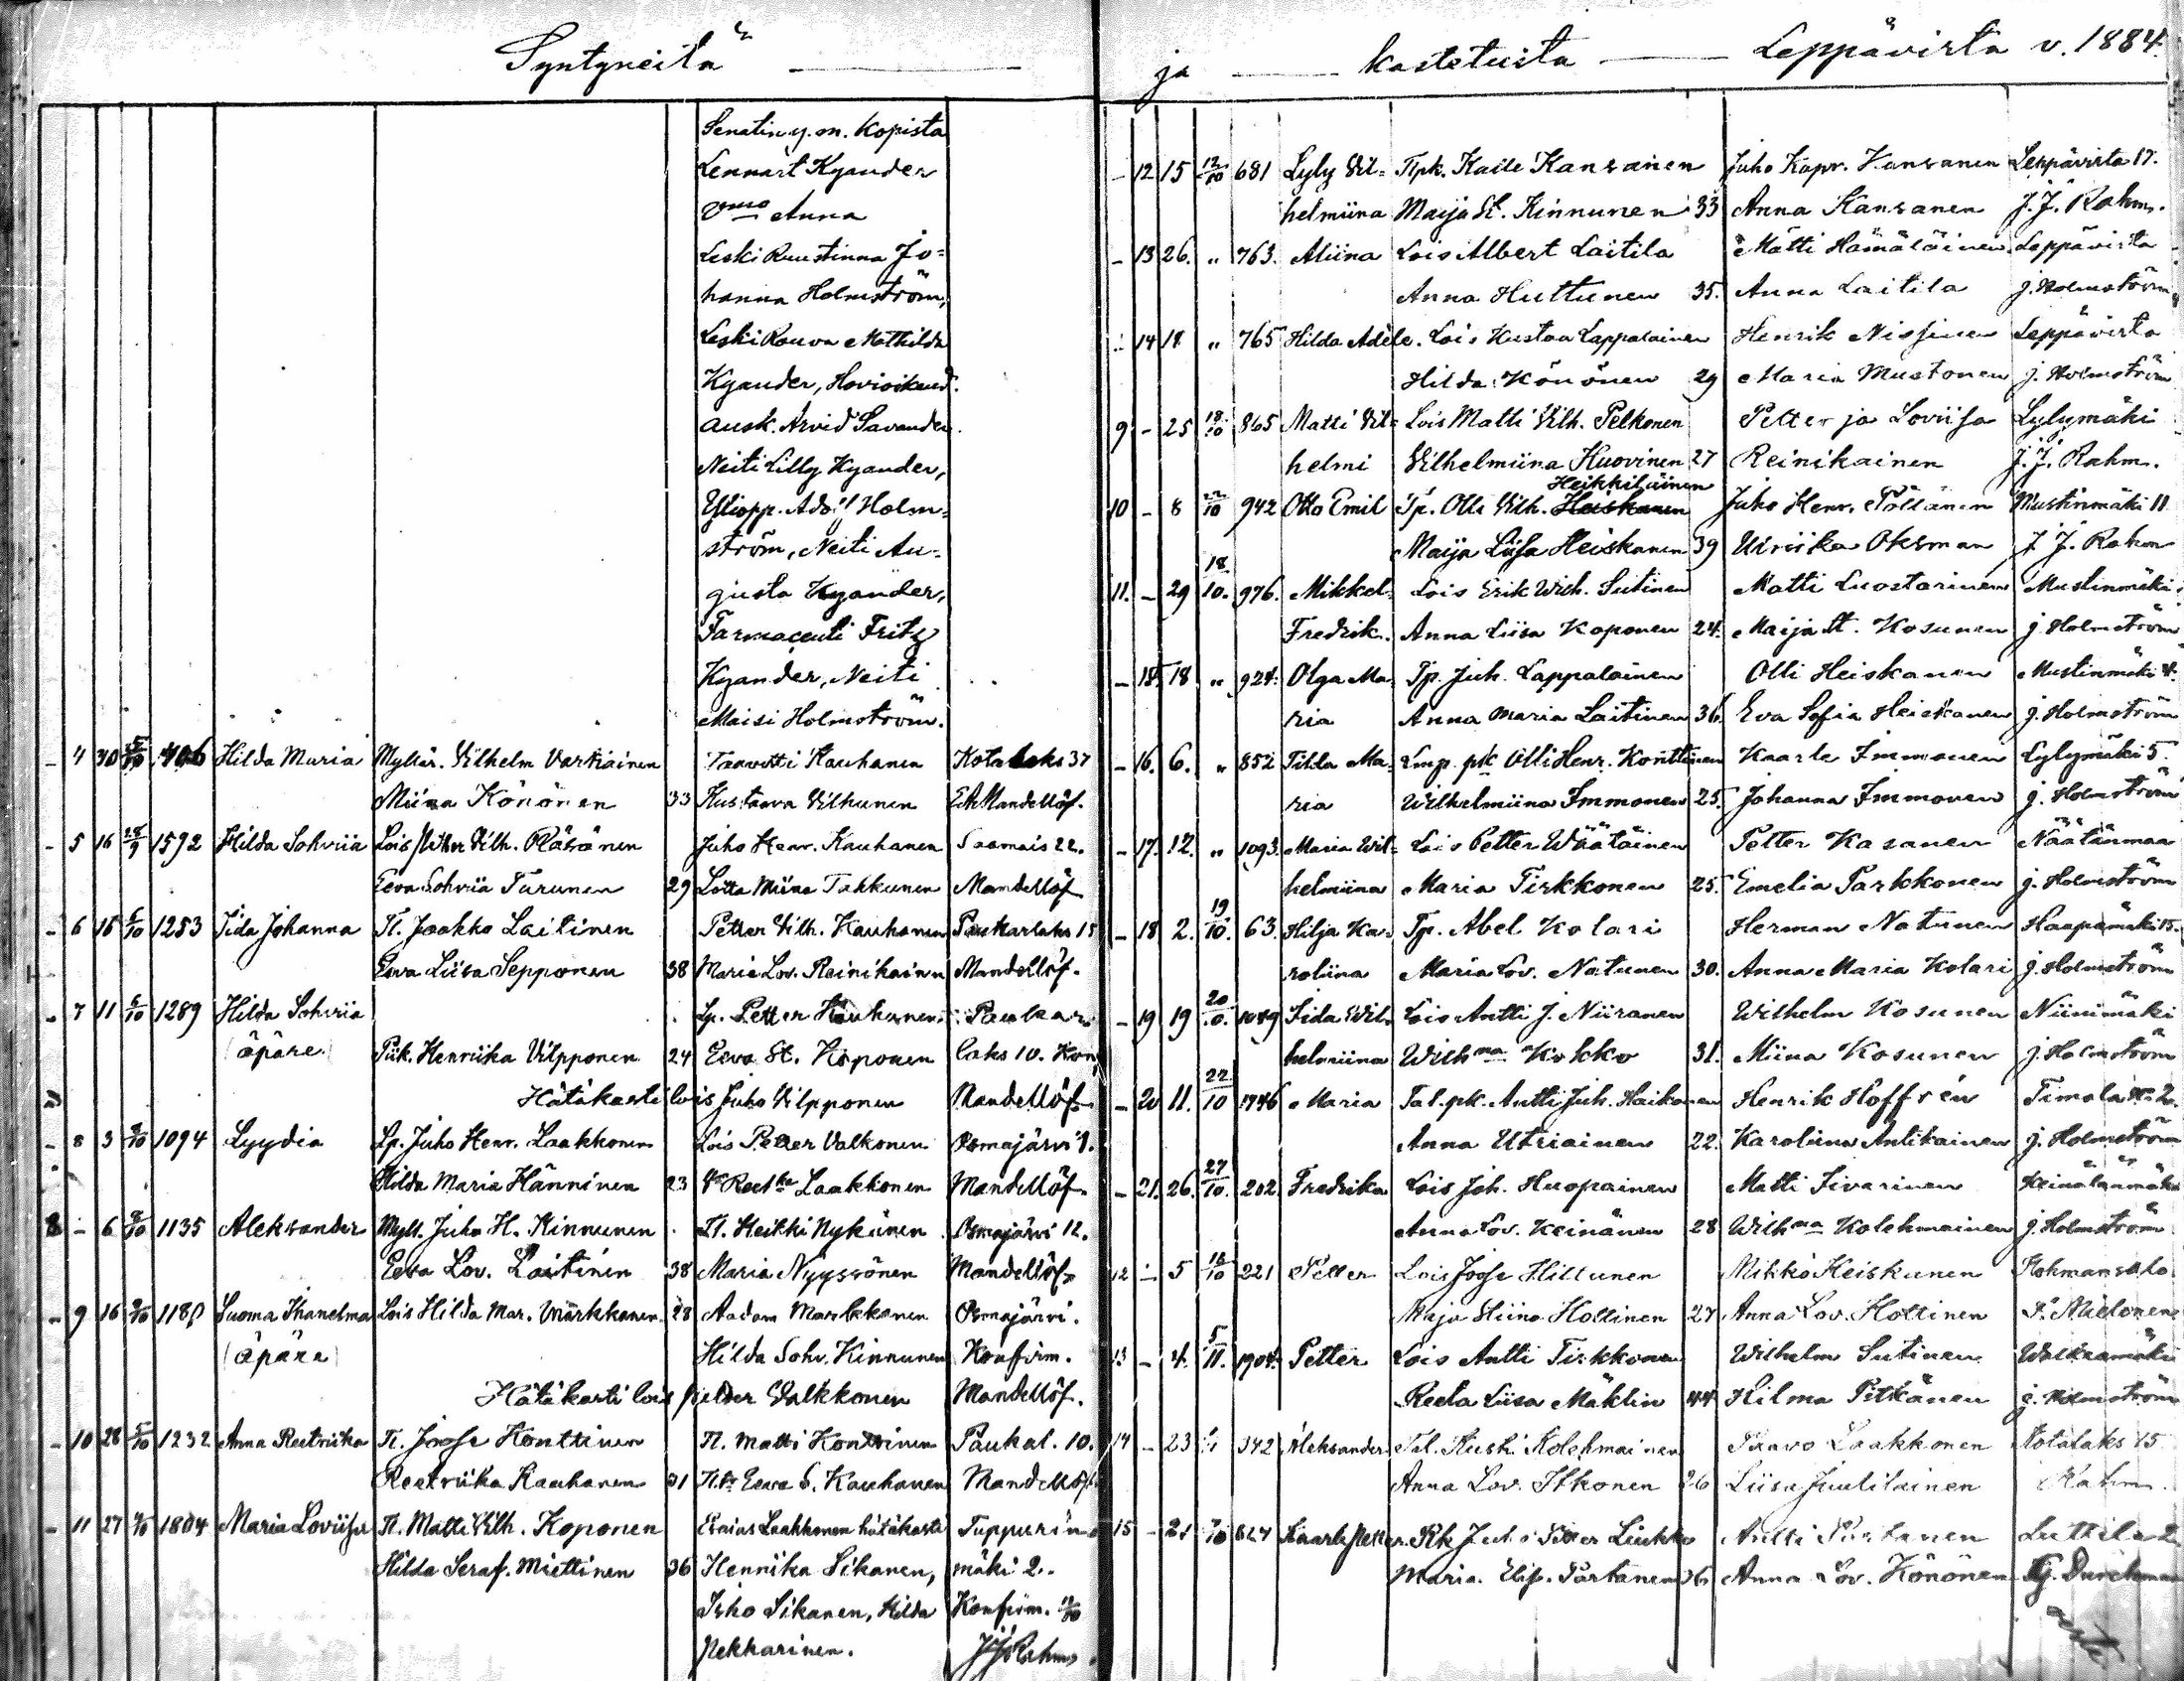 Syntyneitä
ja kastetuista Leppävirta v. 1884.
Senatin y. m. Kopista
Lennart Kyander
Anna
Leski Ruustinna Jo=
hanna Holmström,
Leski Rouva Mathilda
Kyander, Hovioikeud.
ausk. Arvid Savander.
Neiti Lilly Kyander,
Yliopp. Adolf Holm=
ström, Neiti Au=
gusta Kyander,
Farmaceuti Fritz
Kyander, Neiti
Maisi Holmström.
- 4 30 5/10 406 Hilda Maria Myllär. Vilhelm Vartiainen Taavetti Kauhanen Kotalaks 37
Miina Könönen 33 Kustaava Vilhunen Mandellöf.
- 5 16 28/9 1592 Hilda Sohviia Lois Vilh. Räsänen Juho Henr. Kauhanen Saamais 22.
Eeva Sohviia Turunen 29 Lotta Miina Tahkunen Mandellöf
- 6 15 5/10 1253 Iida Johanna Tl. Jaakko Laitinen Petter Vilh. Kauhanen Paukarlaks 15
Eeva Liisa Sepponen 38 Maria Lov. Reinikainen Mandellöf.
- 7 11 5/10 1289 Hilda Sohviia Lp. Petter Kauhanen Paukar
(äpäre) Piik. Henriika Vilpponen 24 Eeva St. Koponen laks 10. Kon
Hätäkasti lois Juho Vilpponen Mandellöf
- 8 3 1094 Lyydia Lp. Juho Henr. Laakkonen Lois Petter Valkonen Osmajärvi 1.
Hilda Maria Hänninen 23 Laakkonen Mandellöf
8 - 6 1135 Aleksander Myll. Juho H. Kinnunen Tl. Heikki Nykänen Osmajärvi 12.
Eeva Lov. Laitinen 38 Maria Nyyssönen Mandellöf
- 9 16 1180 Suoma Ihanelma Lois Hilda Mar. Markkanen 28 Aadam Markkanen Osmajärvi.
(äpäre) Hilda Sohv. Kinnunen Konfirm.
Hätäkasti lois Petter Valkkonen Mandellöf.
- 10 28 5/10 1232 Anna Reetriika Tl. Joose Konttinen Tl. Matti Konttinen Paukal. 10.
Reetriika Kauhanen 31 Eeva S. Kauhanen Mandellöf
- 11 27 1804 Maria Loviisa Tl. Matti Vilh. Koponen Esaias Laakkonen hätäkaste Tuppurin
Hilda Seraf. Miettinen 36 Hennika Sikanen, mäki 2.
Juho Sikanen, Hilda Konfirm.
Pekkarinen. J J Rahm
- 12 15 12/10 681 Lyly Vil= Tlpk. Kalle Kansanen Juho Kapr. Kansanen Leppävirta 17.
helmiina Maija St. Kinnunen 33 Anna Kansanen J. J. Rahm.
- 13 26. " 763. Aliina Lois Albert Laitila Matti Hämäläinen Leppävirta
Anna Huttunen 35. Anna Laitila J. Holmström
- 14 18 " 765 Hilda Adèle. Lois Kustaa Lappalainen Henrik Nissinen Leppävirta
Hilda Könönen 29 Maria Mustonen J. Holmström
9 - 25 18/10 865 Matti Vil= Lois Matti Vilh. Pelkonen Petter ja Loviisa Lylymäki
helmi Vilhelmiina Huovinen 27 Reinikainen J. J. Rahm.
Heikkiläinen
10 - 8 22/10 942 Otto Emil Tp. Olli Vilh. Heiskanen Juho Henr. Töllänen Mustinmäki 11
Maija Liisa Heiskanen 39 Ulriika Oksman J. J. Rahm
11. - 29 18/10. 976. Mikkel= Lois Erik Wilh. Sutinen Matti Luostarinen Mustinmäki
Fredrik. Anna Liisa Koponen 24. Maija St. Kosunen J. Holmström
- 15 18 " 924. Olga Ma= Tp. Juh. Lappalainen Olli Heiskanen Mustinmäki 4.
ria Anna Maria Laitinen 36. Eva Sofia Heiskanen J. Holmström
- 16. 6. " 852 Tilda Ma= Lmp. pk Olli Henr. Konttinen Kaarle Immonen Lylymäki 5.
ria Wilhelmiina Immonen 25. Johanna Immonen J. Holmström
- 17. 12. " 1093. Maria Wil= Lois Petter Väätäinen Petter Kasanen Näätänmaa
helmiina Maria Tirkkonen 25. Emelia Parkkonen J. Holmström
- 18 2. 19/10. 63. Hilja Ka= Tp. Abel Kolari Herman Natunen Haapamäki 15.
roliina Maria Lov. Natunen 30. Anna Maria Kolari J. Holmström
- 19 19 20/10. 1049 Iida Wil= Lois Antti J. Niiranen Wilhelm Kosunen Niinimäki
helmiina Wilhma Kokko 31. Miina Kosunen J. Holmström
- 20 11. 22/10 1746 Maria Tal. pk. Antti Juh. Haikonen Henrik Hoffrén Timola No 2.
Anna Utriainen 22. Karoliina Antikainen J. Holmström
- 21. 26. 27/10. 202. Fredrika Lois Joh. Huopainen Matti Iivarinen Keinälänmäki
Anna Lov. Keinänen 28 Wilhma Kolehmainen J. Holmström
12 - 5 221 Petter Lois Joose Hiltunen Mikko Heiskanen Kohmansalo
Maja Stiina Hottinen 27 Anna Lov. Hottinen
13 - 4. 5/11. 1904. Petter Lois Antti Tirkkonen Wilhelm Sutinen
Reeta Liisa Mäklin 44 Hilma Pitkänen J. Holmström
14 - 23 342 Aleksander Tal. Kusti Kolehmainen Paavo Laakkonen Kotalaks 15
Anna Lov. Itkonen 26 Liisa Juutilainen Rahm.
15 - 21 Kaarle Petter Liukko Antti Partanen Luttila 2
Maria Elis. Partanen 36 Anna Lov. Könönen